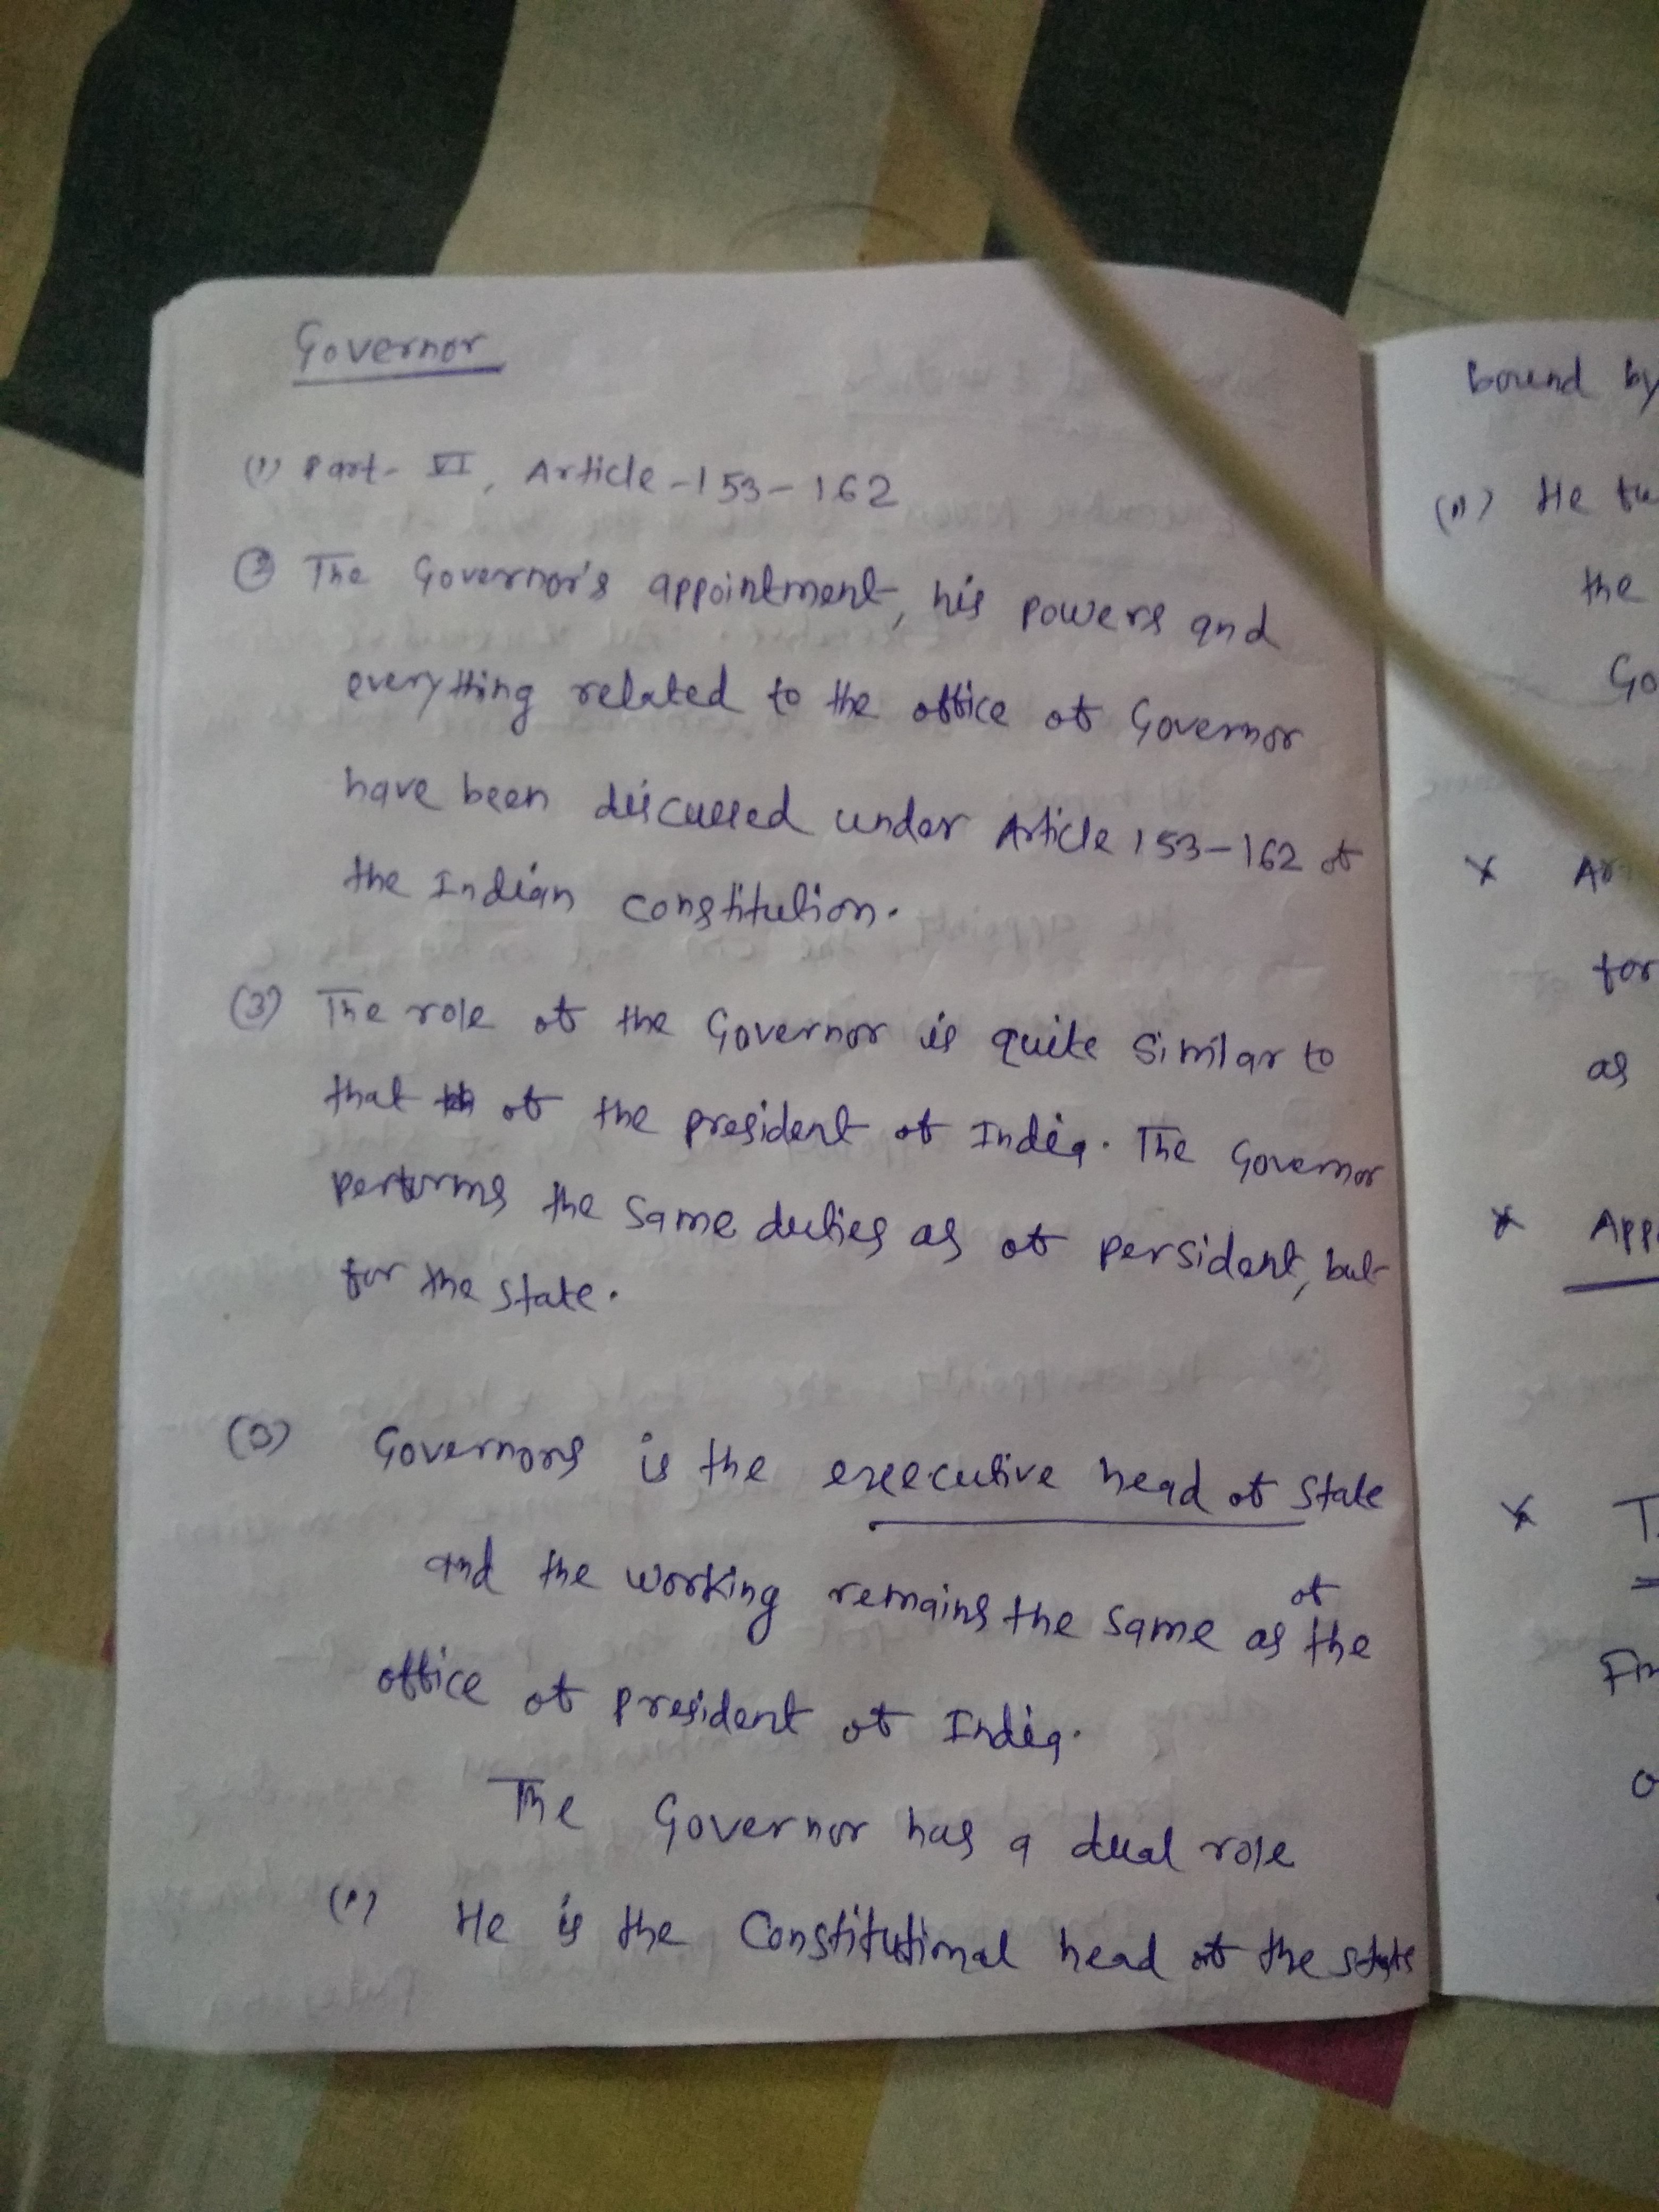 Governor
(1) Part- VI, Article-153-162
② The Governor's appointment, his powers and
everything related to the office of Governor
have been discussed under Article 153-162 of
the Indian constitution.
(3) The role of the Governor is quite similar to
that of the president of India. The Governor
performs the same duties as of persident, but
for the state.
(3) Governors is the executive head of state
and the working remains the same as of the
office of president of India.
The Governor has a dual role
(1) He is the Constitutional head of the state
bound by
(11) He fu
the
Go
x Ar
for
as
* App
* T
Fin
o